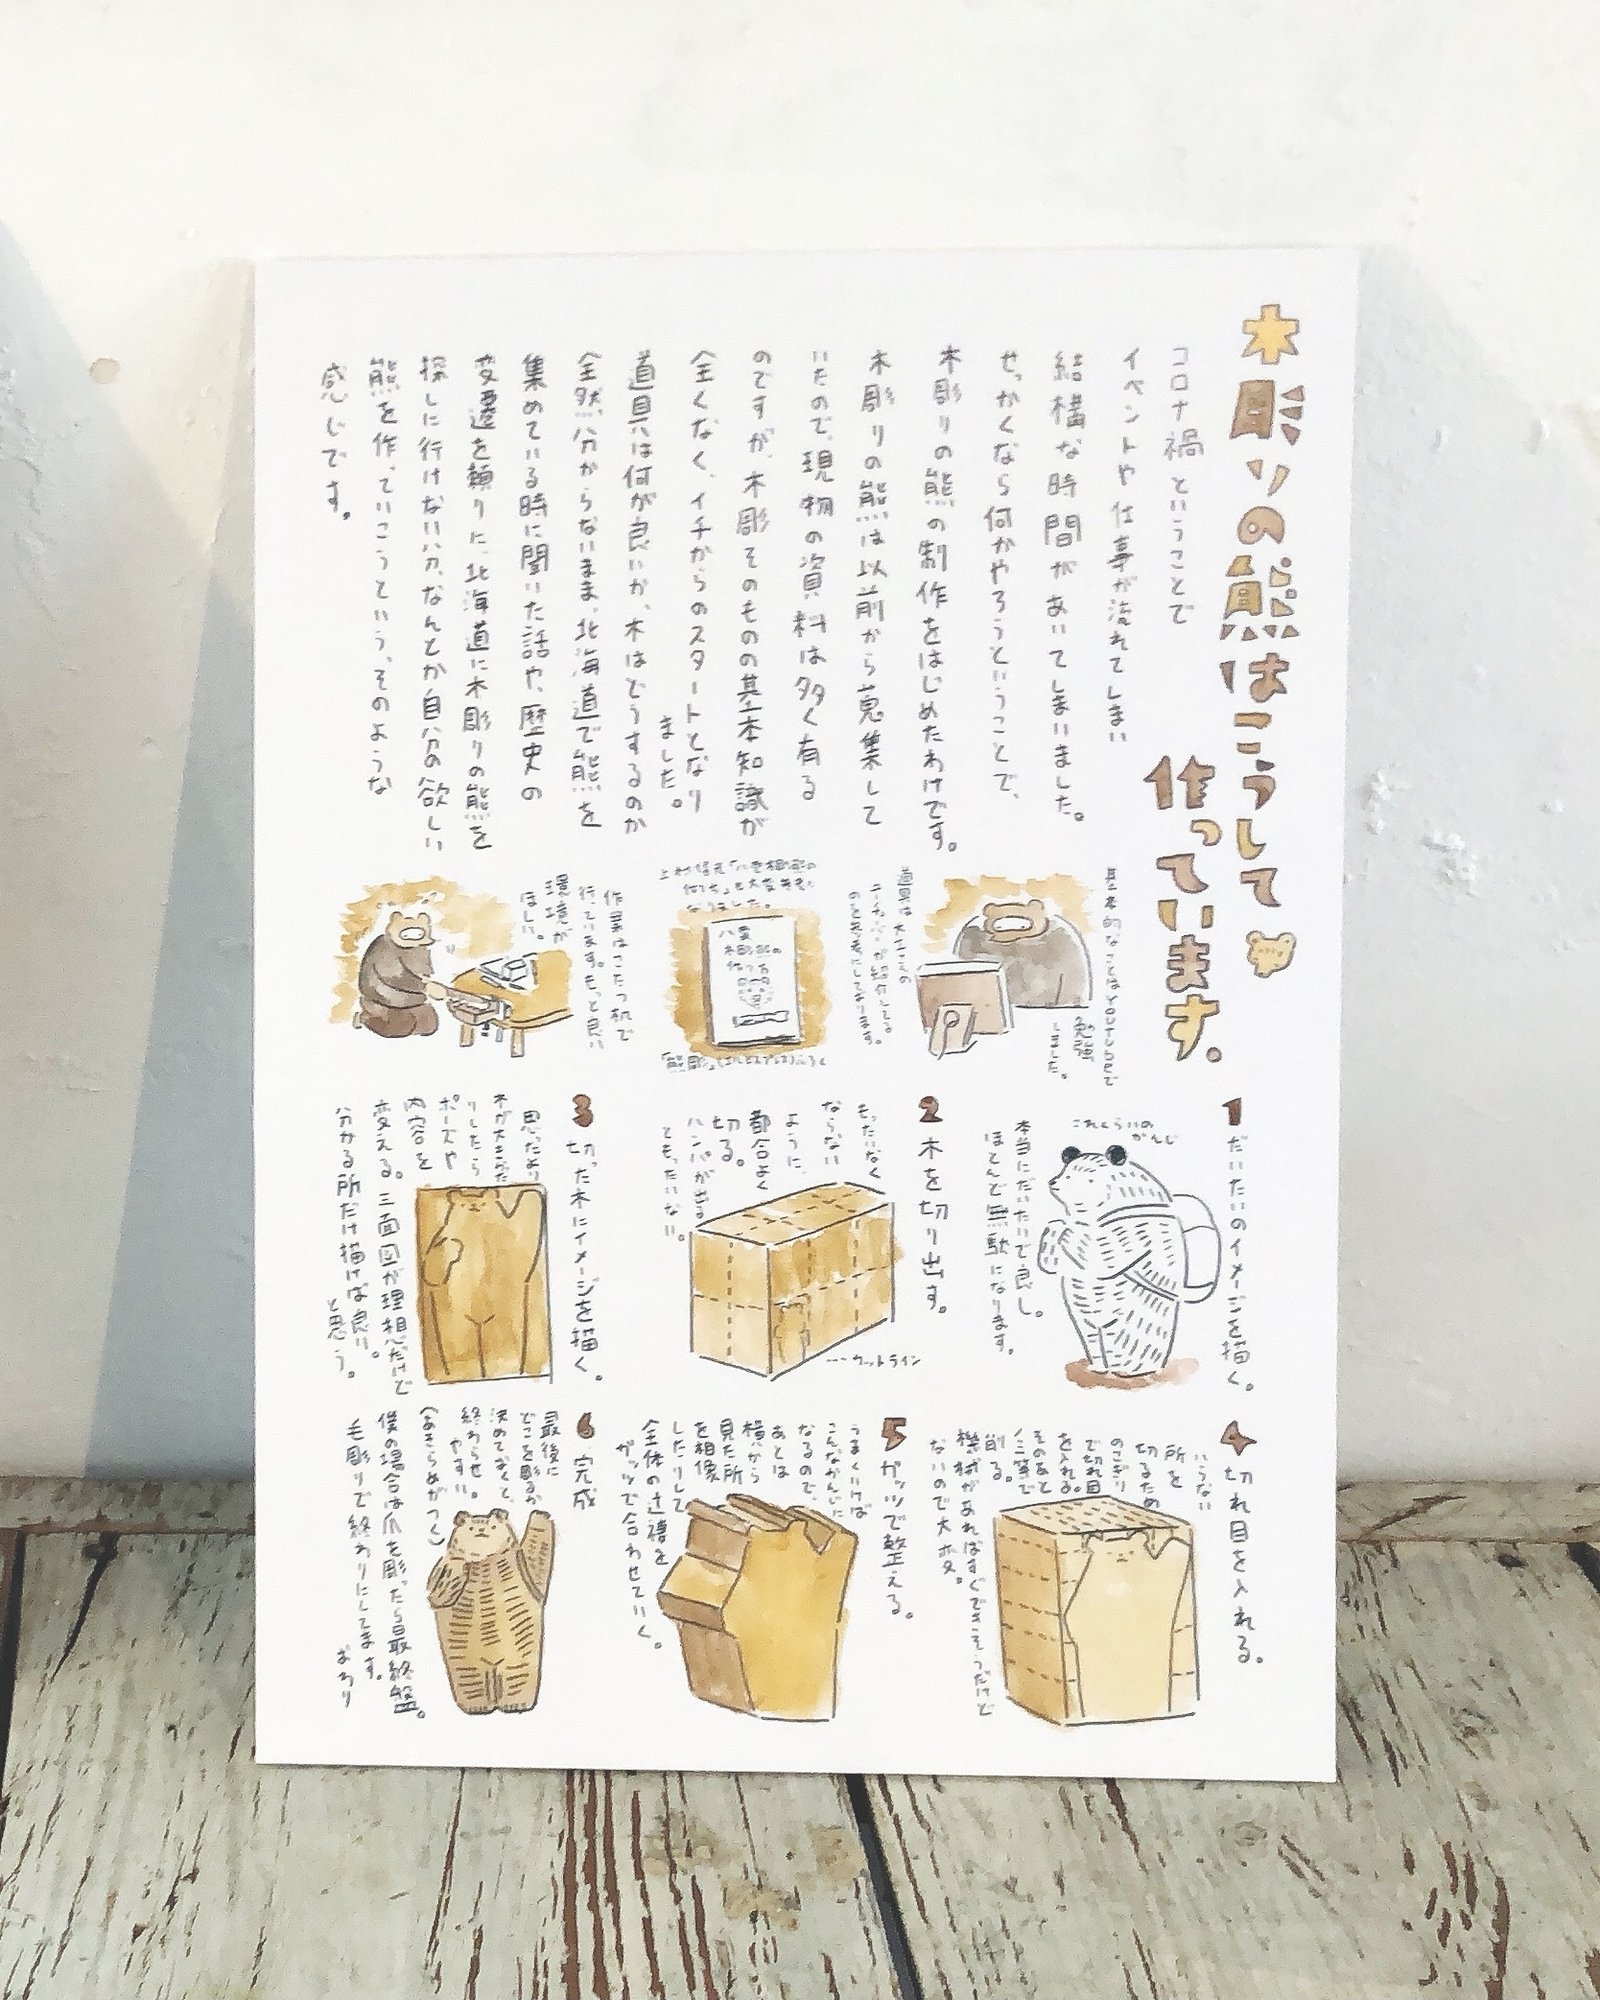 木彫りの熊はこうして
作っています。
コロナ禍ということで
イベントや仕事が流れてしまい
結構な時間があいてしまいました。
せっかくなら何かやろうということで、
木彫りの熊の制作をはじめたわけです。
木彫りの熊は以前から蒐集して
いたので、現物の資料は多く有る
のですが、木彫そのものの基本知識が
全くなく、イチからのスタートとなり
ました。
道具は何が良いか、木はどうするのか
全然分からないまま、北海道で熊を
集めている時に聞いた話や、歴史の
変遷を頼りに、北海道に木彫りの熊を
探しに行けない分、なんとか自分の欲しい
熊を作っていこうという、そのような
感じです。
基本的なことはYOUTUBEで
勉強
しました。
道具は大工の
のを参考にしております。
八雲
木彫熊の
作業はこたつ机で
行っています。もっと良い
環境が
ほしい。
1 だいたいのイメージを描く。
これくらいの
かんじ
本当にだいたいで良し。
ほとんど無駄になります。
2 木を切り出す。
もったいなく
ならない
ように、
都合よく
切る。
ハンパがでま
てもったいない。
---カットライン
3 切った木にイメージを描く。
思ったより
木が大きかった
りしたら
ポーズや
内容を
変える。三面図が理想だけど
分かる所だけ描けば良い。
と思う。
4 切れ目を入れる。
いらない
所を
切るため
のこぎり
で切れ目
を入れる。
そのあと
削る。
機材があればすぐできそうだけど
ないので大変。
5 ガッツで整える。
うまくいけば
こんなかんじに
なるので、
あとは
横から
見た所
を想像
したりして
全体の辻褄を
ガッツで合わせていく。
6 完成
最後に
どこを彫るか
決めておくと、
終わらせ
やすい。
(あきらめがつく)
僕の場合は爪を彫ったら最終盤。
毛彫りで終わりにしてます。
おわり